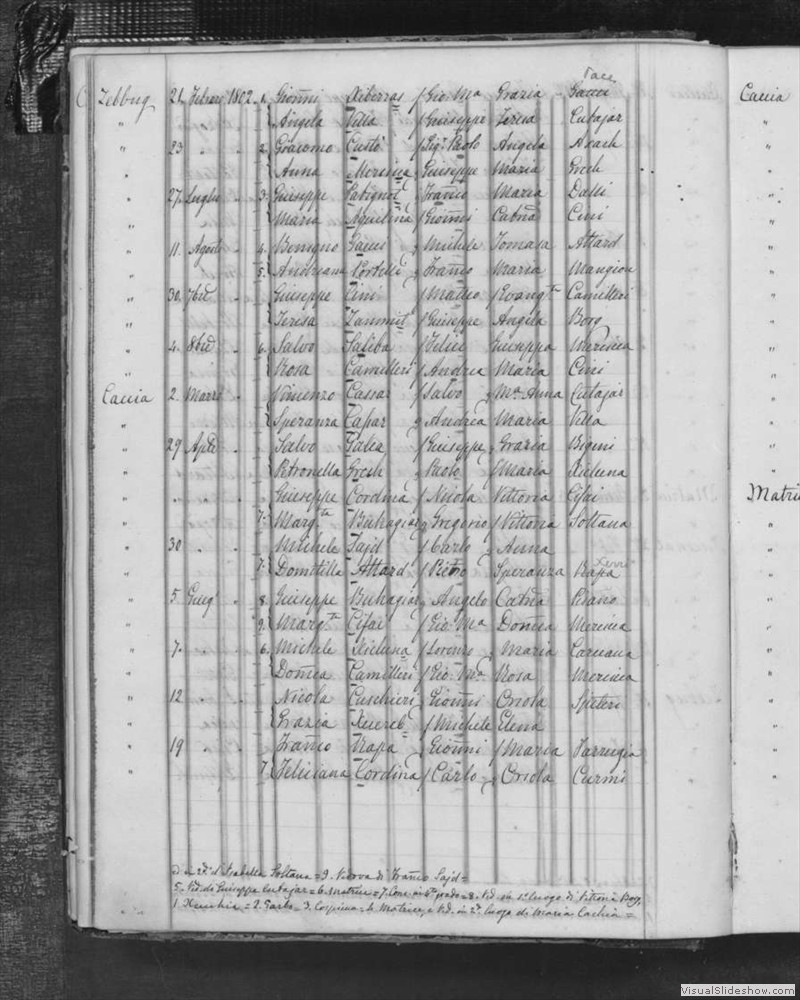 Pace
Zebbug 21. Febrai 1802. 1. Gionni Xiberras / Gio. Ma Grazia - Gauci
" Angela Villa / Giuseppe Teresa Cutajar
" 23 2. Giacomo Custo / Sigr Paolo Angela Axach
" Anna Mersieca / Giuseppe Maria Grech
" 27. Luglio 3. Giuseppe / Franco Maria Dalli
" Maria Aquilina / Gionni Catna Cini
" 11. Agosto 4. Benigno Gauci / Michele Tomasa Attard
" 5. Andreana Portelli / Franco Maria Mangion
" 30. 7bre Giuseppe Cini / Matteo / Evangta Camilleri
" Teresa Zammit / Giuseppe Angela Borg
" 4. 8bre 6. Salvo Saliba / Felice Giuseppa Mersieca
" Rosa Camilleri / Andrea Maria Cini
Caccia 2. Marzo Vincenzo Cassar / Salvo / Ma Anna Cutajar
" Speranza Capar / Andrea Maria Villa
" 29 Aple Salvo Galea / Giuseppe / Grazia Bigeni
" Petronella Grech / Paolo / Maria Xicluna
" " " Giuseppe Cordina / Nicola Vittoria Cifai
" 7. Margta Buhagiar / Gregorio / Vittoria Soltana
" 30 " Michele Sajd / Carlo / Anna
Xerri
" 7. Domitilla Attard / Pietro Speranza Rapa
" 5 Giug 8. Giuseppe Buhagiar / Angelo Catna Pisano
" 9. Margta Cifai / Gio. Ma Domca Mersieca
" 7. 6. Michele Xicluna / Lorenzo / Maria Caruana
" Domca Camilleri / Gio. Ma Rosa Mersieca
" 12 Nicola Cuschieri / Gionni Orsola Spiteri
" Grazia Xuereb / Michele Elena
" 19 Franco Rapa / Gionni / Maria Farrugia
" 7. Feliciana Cordina / Carlo / Orsola Curmi
Isabella Soltana = 9. Vedova di Franco Sajd =
5. Ved. di Giuseppe Cutajar = 6. Matrice = 7. Cons. in 4to grado = 8. Ved. in 1o luogo di Vittoria Borg,
1. Xeuchia = 2. Garbo = 3. Cospicua = 4. Matrice, e Ved. in 2o luogo di Maria Cachia =
Caccia
Matri